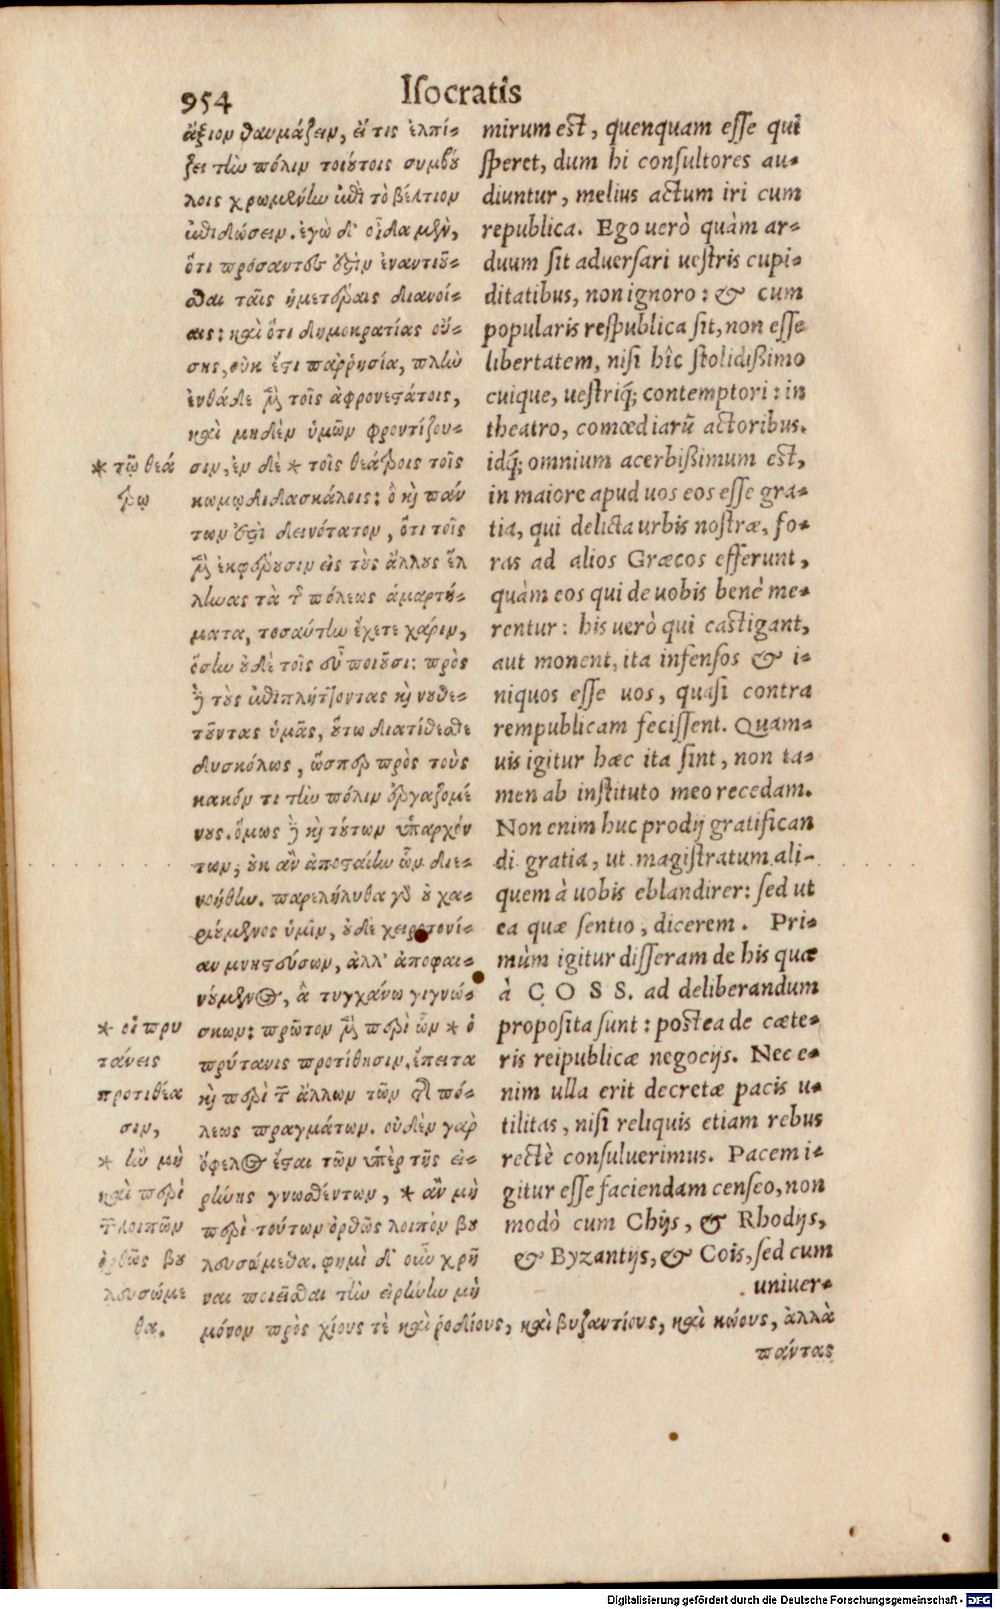 954 Iſocratis
ἄξιον θαυμάζειν, εἴ τις ἐλπί-
ζει τὴν πόλιν τοιούτοις συμβού
λοις χρωμένην ἐπὶ τὸ βέλτιον
ἐπιδώσειν. ἐγὼ δ' οἶδα μὲν,
ὅτι πρόσαντές ἐστιν ἐναντιοῦ-
σθαι ταῖς ἡμετέραις διανοί-
αις: καὶ ὅτι δημοκρατίας οὔ-
σης, οὐκ ἔστι παῤῥησία, πλὴν
ἐνθάδε μὲν τοῖς ἀφρονεστάτοις,
καὶ μηδὲν ὑμῶν φροντίζου-
σιν, ἐν δὲ * τοῖς θεάτροις τοῖς
κωμῳδιδασκάλοις: ὃ καὶ πάν
των ἐστὶ δεινότατον, ὅτι τοῖς
μὲν ἐκφέρουσιν εἰς τοὺς ἄλλους ἕλ
ληνας τὰ τῆς πόλεως ἁμαρτή-
ματα, τοσαύτην ἔχετε χάριν,
ὅσην οὐδὲ τοῖς εὖ ποιοῦσι: πρὸς
δὲ τοὺς ἐπιπλήττοντας καὶ νουθε-
τοῦντας ὑμᾶς, οὕτω διατίθεσθε
δυσκόλως, ὥσπερ πρὸς τοὺς
κακόν τι τὴν πόλιν ἐργαζομέ
νους. ὅμως δὲ καὶ τούτων ὑπαρχόν
των, οὐκ ἂν ἀποσταίην ὧν διε-
νοήθην. παρελήλυθα γὰρ οὐ χα-
ριέμενος ὑμῖν, οὐδὲ χειροτονί-
αν μνηστεύσων, ἀλλ' ἀποφαι-
νούμενος, ἃ τυγχάνω γιγνώ-
σκων: πρῶτον μὲν περὶ ὧν * ὁ
πρύτανις προτίθησιν, ἔπειτα
καὶ περὶ τῶν ἄλλων τῶν τῆς πό-
λεως πραγμάτων. οὐδὲν γὰρ
ὄφελος ἔσται τῶν ὑπὲρ τῆς εἰ-
ρήνης γνωσθέντων, * ἂν μὴ
περὶ τούτων ὀρθῶς λοιπὸν βου
λευσώμεθα. φημὶ δ' οὖν χρῆ
ναι ποιεῖσθαι τὴν εἰρήνην μὴ
μόνον πρὸς χίους τὲ καὶ ῥοδίους, καὶ βυζαντίους, καὶ κώους, ἀλλὰ
πάντας
* τῷ θεά
τρῳ
* οἱ πρυ
τάνεις
προτιθέα
σιν,
* ἢν μὴ
καὶ περὶ
τῶν λοιπῶν
ὀρθῶς βου
λευσώμε
θα.
mirum est, quenquam eſſe qui
ſperet, dum hi conſultores au-
diuntur, melius actum iri cum
republica. Ego uerò quàm ar-
duum ſit aduerſari ueſtris cupi-
ditatibus, non ignoro: & cum
popularis reſpublica ſit, non eſſe
libertatem, niſi hîc ſtolidißimo
cuique, ueſtriq́; contemptori: in
theatro, comœdiarũ actoribus.
idq́; omnium acerbißimum est,
in maiore apud uos eos eſſe gra-
tia, qui delicta urbis noſtræ, fo-
ras ad alios Græcos efferunt,
quàm eos qui de uobis benè me-
rentur: his uerò qui caſtigant,
aut monent, ita infenſos & i-
niquos eſſe uos, quaſi contra
rempublicam feciſſent. Quam-
uis igitur hæc ita ſint, non ta-
men ab inſtituto meo recedam.
Non enim huc prodij gratifican
di gratia, ut magiſtratum ali-
quem à uobis eblandirer: ſed ut
ea quæ ſentio, dicerem. Pri-
mùm igitur diſſeram de his quæ
à COSS. ad deliberandum
propoſita ſunt: poſtea de cæte-
ris reipublicæ negocijs. Nec e-
nim ulla erit decretæ pacis u-
tilitas, niſi reliquis etiam rebus
rectè conſuluerimus. Pacem i-
gitur eſſe faciendam cenſeo, non
modò cum Chijs, & Rhodijs,
& Byzantijs, & Cois, ſed cum
uniuer-
Digitalisierung gefördert durch die Deutsche Forschungsgemeinschaft - DFG